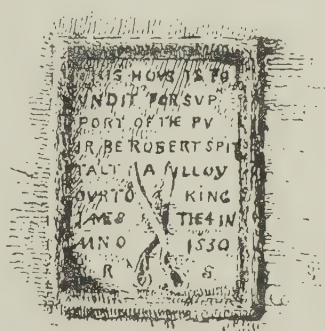 THIS HOVS IS FO
VNDIT FOR SVP
PORT OF THE PV
IR BE ROBERT SPIT
TALT A ILLOV
OVRTO KING
IAMES THE 4 IN
ANNO 1530
R S